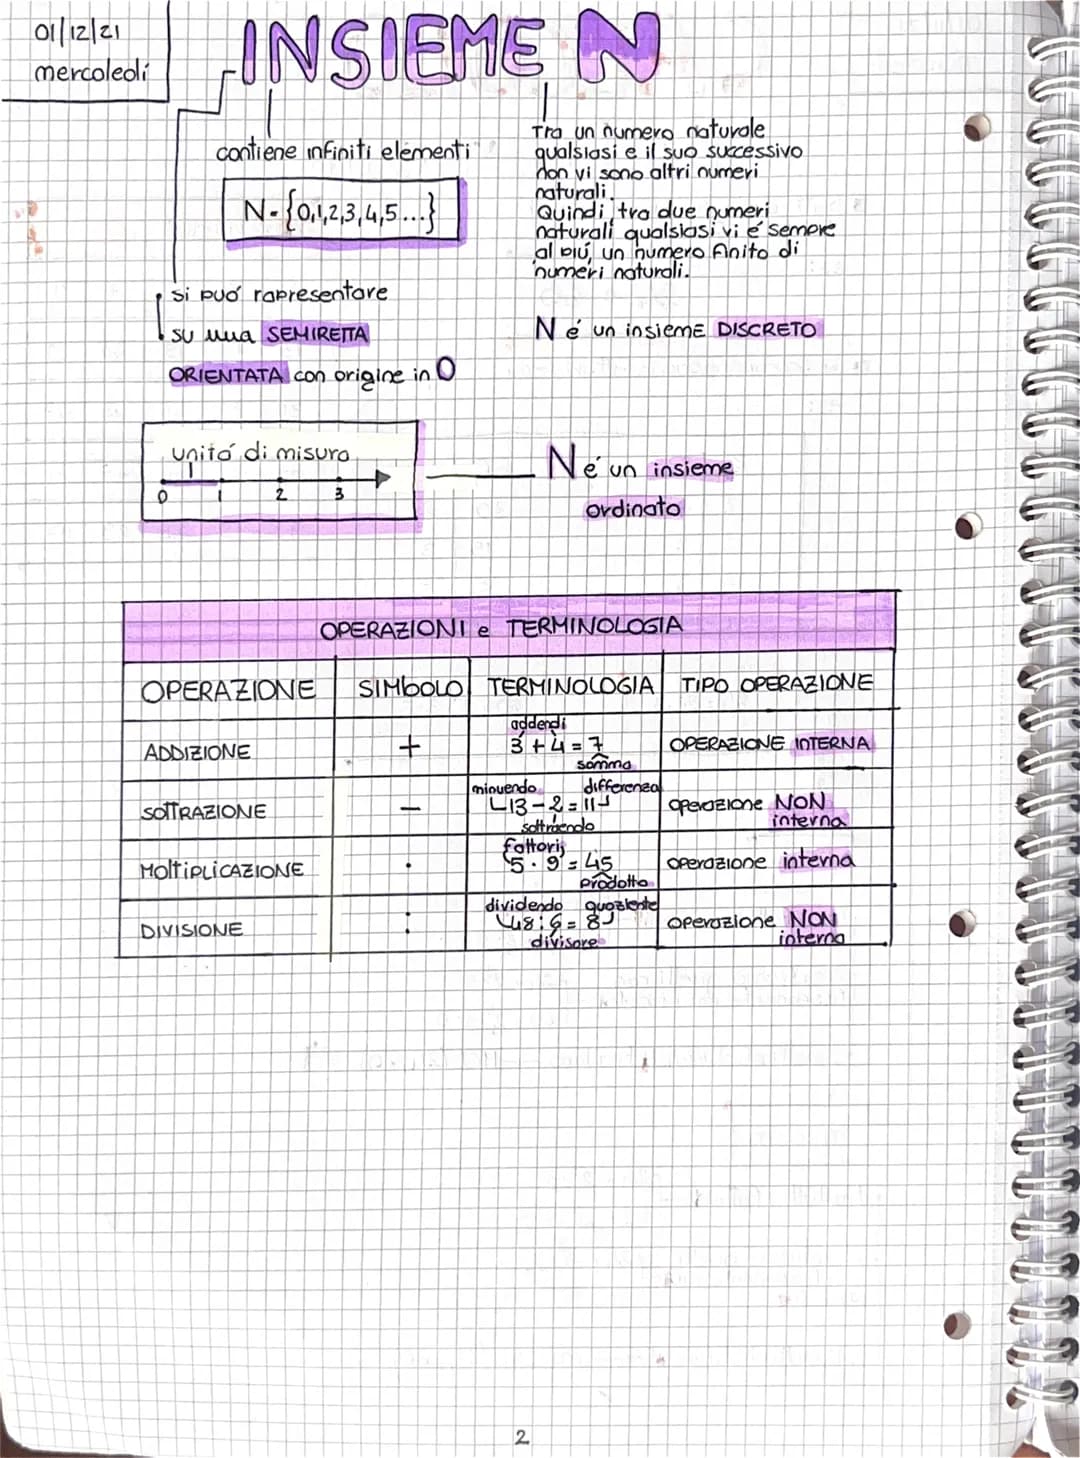 01/12/21
mercoledí
INSIEME N
contiene infiniti elementi
N={0,1,2,3,4,5...}
Tra un numero naturale
qualsiasi e il suo successivo
non vi sono altri numeri
naturali.
Quindi, tra due numeri
naturali qualsiasi vi é sempre
al piú, un numero finito di
numeri naturali.
si puó rapresentare
su una SEMIRETTA
ORIENTATA con origine in O
N é un insieme DISCRETO
unitá di misura
0 1 2 3
N é un insieme
ordinato
OPERAZIONI e TERMINOLOGIA
OPERAZIONE SIMBOLO TERMINOLOGIA TIPO OPERAZIONE
addendi
ADDIZIONE + 3+4=7 OPERAZIONE INTERNA
somma
minuendo differenza
SOTTRAZIONE - 13-2=11 operazione NON
sottraendo interna
fattori
MOLTIPLICAZIONE · 5·9=45 operazione interna
prodotto
dividendo quoziente
DIVISIONE : 48:6=8 operazione NON
divisore interna
2